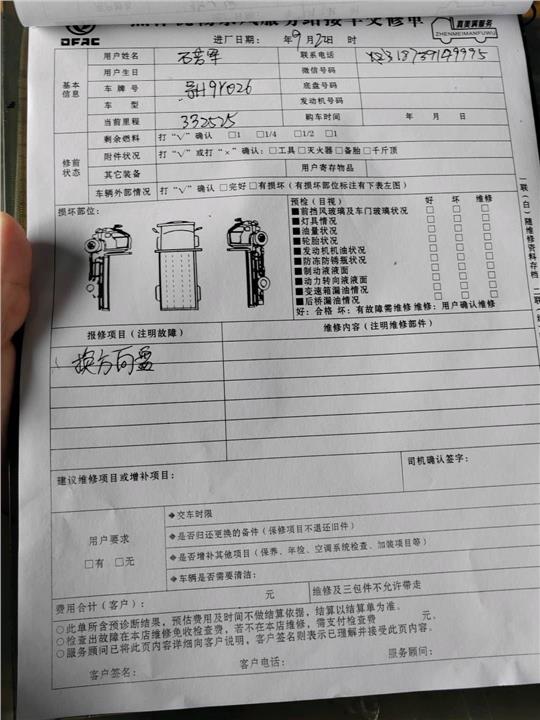 服务站接车交修单
DFAC
真美满服务
ZHENMEIMANFUWU
进厂日期： 年9月22日 时
基本信息
用户姓名
联系电话 18739149995
用户生日
微信号码
车牌号 H9Y026
底盘号码
车型
发动机号码
当前里程 332525
购车时间 年 月 日
修前状态
剩余燃料 打“√”确认 □1 □1/4 □1/2 □1
附件状况 打“√”或打“×”确认：□工具□灭火器□备胎□千斤顶
其它装备
用户寄存物品
车辆外部情况 打“√”确认 □完好□有损坏（有损坏部位标注有下表左图）
损坏部位：
预检（目视） 好 坏 维修
■前挡风玻璃及车门玻璃状况 □ □ □
■灯具情况 □ □ □
■油量状况 □ □ □
■轮胎状况 □ □ □
■发动机机油状况 □ □ □
■防冻防锈瓶状 □ □ □
■制动液液面 □ □ □
■动力转向液液面 □ □ □
■变速箱漏油情况 □ □ □
■后桥漏油情况 □ □ □
好：合格 坏：有故障需维修 维修：用户确认维修
一联（白）随维修资料存档
报修项目（注明故障）
维修内容（注明维修部件）
换方向
建议维修项目或增补项目：
司机确认签字：
用户要求
□有 □无
◆交车时限
◆是否归还更换的备件（保修项目不退还旧件）
◆是否增补其他项目（保养、年检、空调系统检查、加装项目等）
◆车辆是否需要清洁：
费用合计（客户）： 元
维修及三包件不允许带走
○此单所含预诊断结果，预估费用及时间不做结算依据，结算以结算单为准。
○检查出故障在本店维修免收检查费，若不在本店维修，需支付检查费 元。
○服务顾问已将此页内容详细向客户说明，客户签名则表示已理解并接受此页内容。
客户签名： 客户电话： 服务顾问：